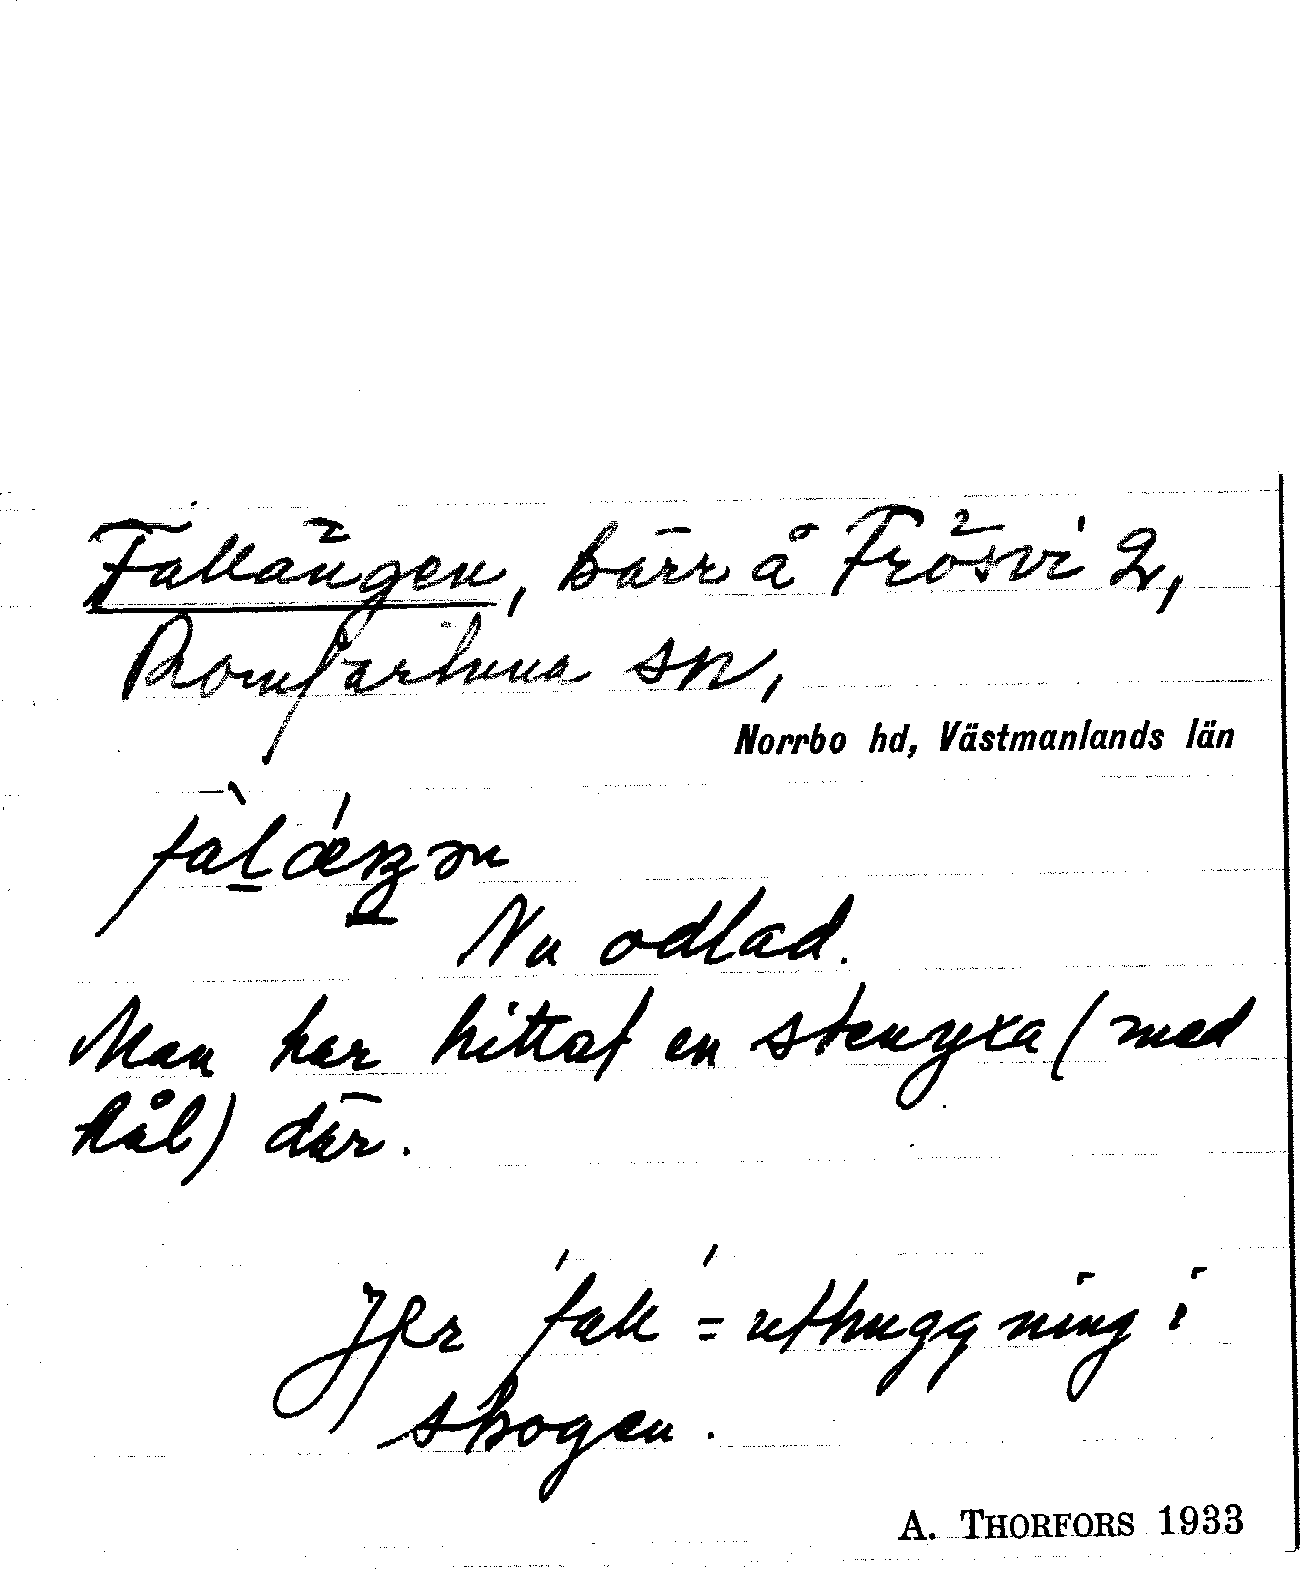 Fallängen, bärr å Frösvi 2,
Romfartuna sn,
Norrbo hd, Västmanlands län
Nu odlad.
Man har hittat en stenyxa (med
hål) där.
Jfr 'fall' = uthuggning i
skogen.
A. THORFORS 1933